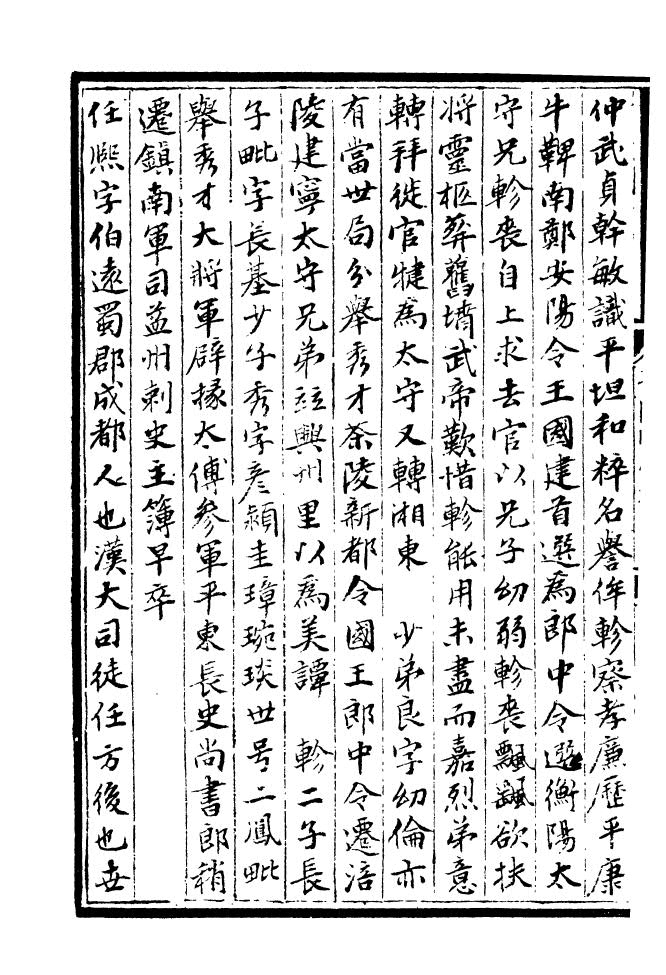 仲武貞幹敏識平坦和粹名譽侔軫察孝廉歷平康
牛鞞南鄭安陽令王國建首選爲郎中令遷衡陽太
守兄軫喪自上求去官以兄子幼弱軫喪飄飄欲扶
將靈柩葬舊墳武帝歎惜軫能用未盡而嘉烈弟意
轉拜徙官犍爲太守又轉湘東　少弟良字幼倫亦
有當世局分舉秀才茶陵新都令國王郎中令遷涪
陵建寧太守兄弟竝興州里以爲美譚　軫二子長
子毗字長基少子秀字彥潁圭璋琬琰世号二鳳毗
舉秀才大將軍辟掾太傅參軍平東長史尚書郎稍
遷鎮南軍司益州刺史主簿早卒
任熙字伯遠蜀郡成都人也漢大司徒任方後也世